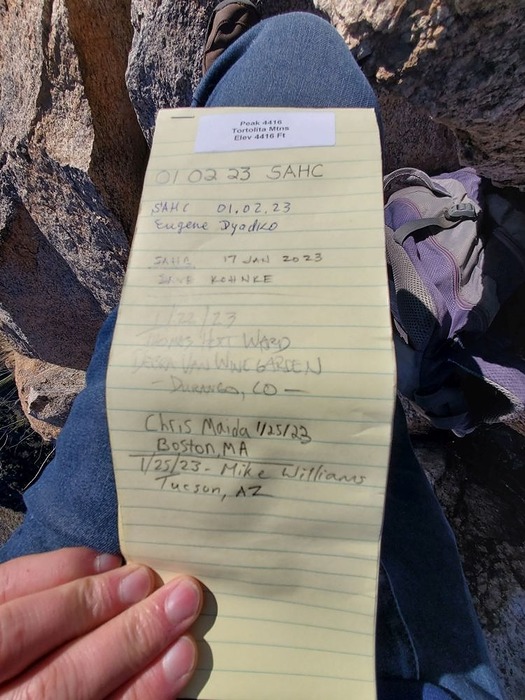 Peak 4416
Tortolita Mtns
Elev 4416 Ft
01 02 23 SAHC
SAHC 01.02.23
Eugene Dyadko
SAHC 17 JAN 2023
DAVE KOHNKE
1/22/23
WARD
DEBRA VAN WINGARDEN
- DURANGO, CO -
Chris Maida 1/25/23
Boston, MA
1/25/23 - Mike Williams
Tucson, AZ